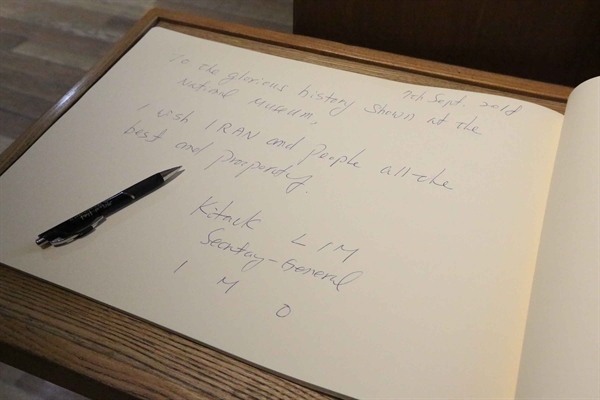 7th Sept. 2018
To the glorious history shown at the
National Museum,
I wish IRAN and people all the
best and prosperity.
Kitack LIM
Secretary-General
I M O